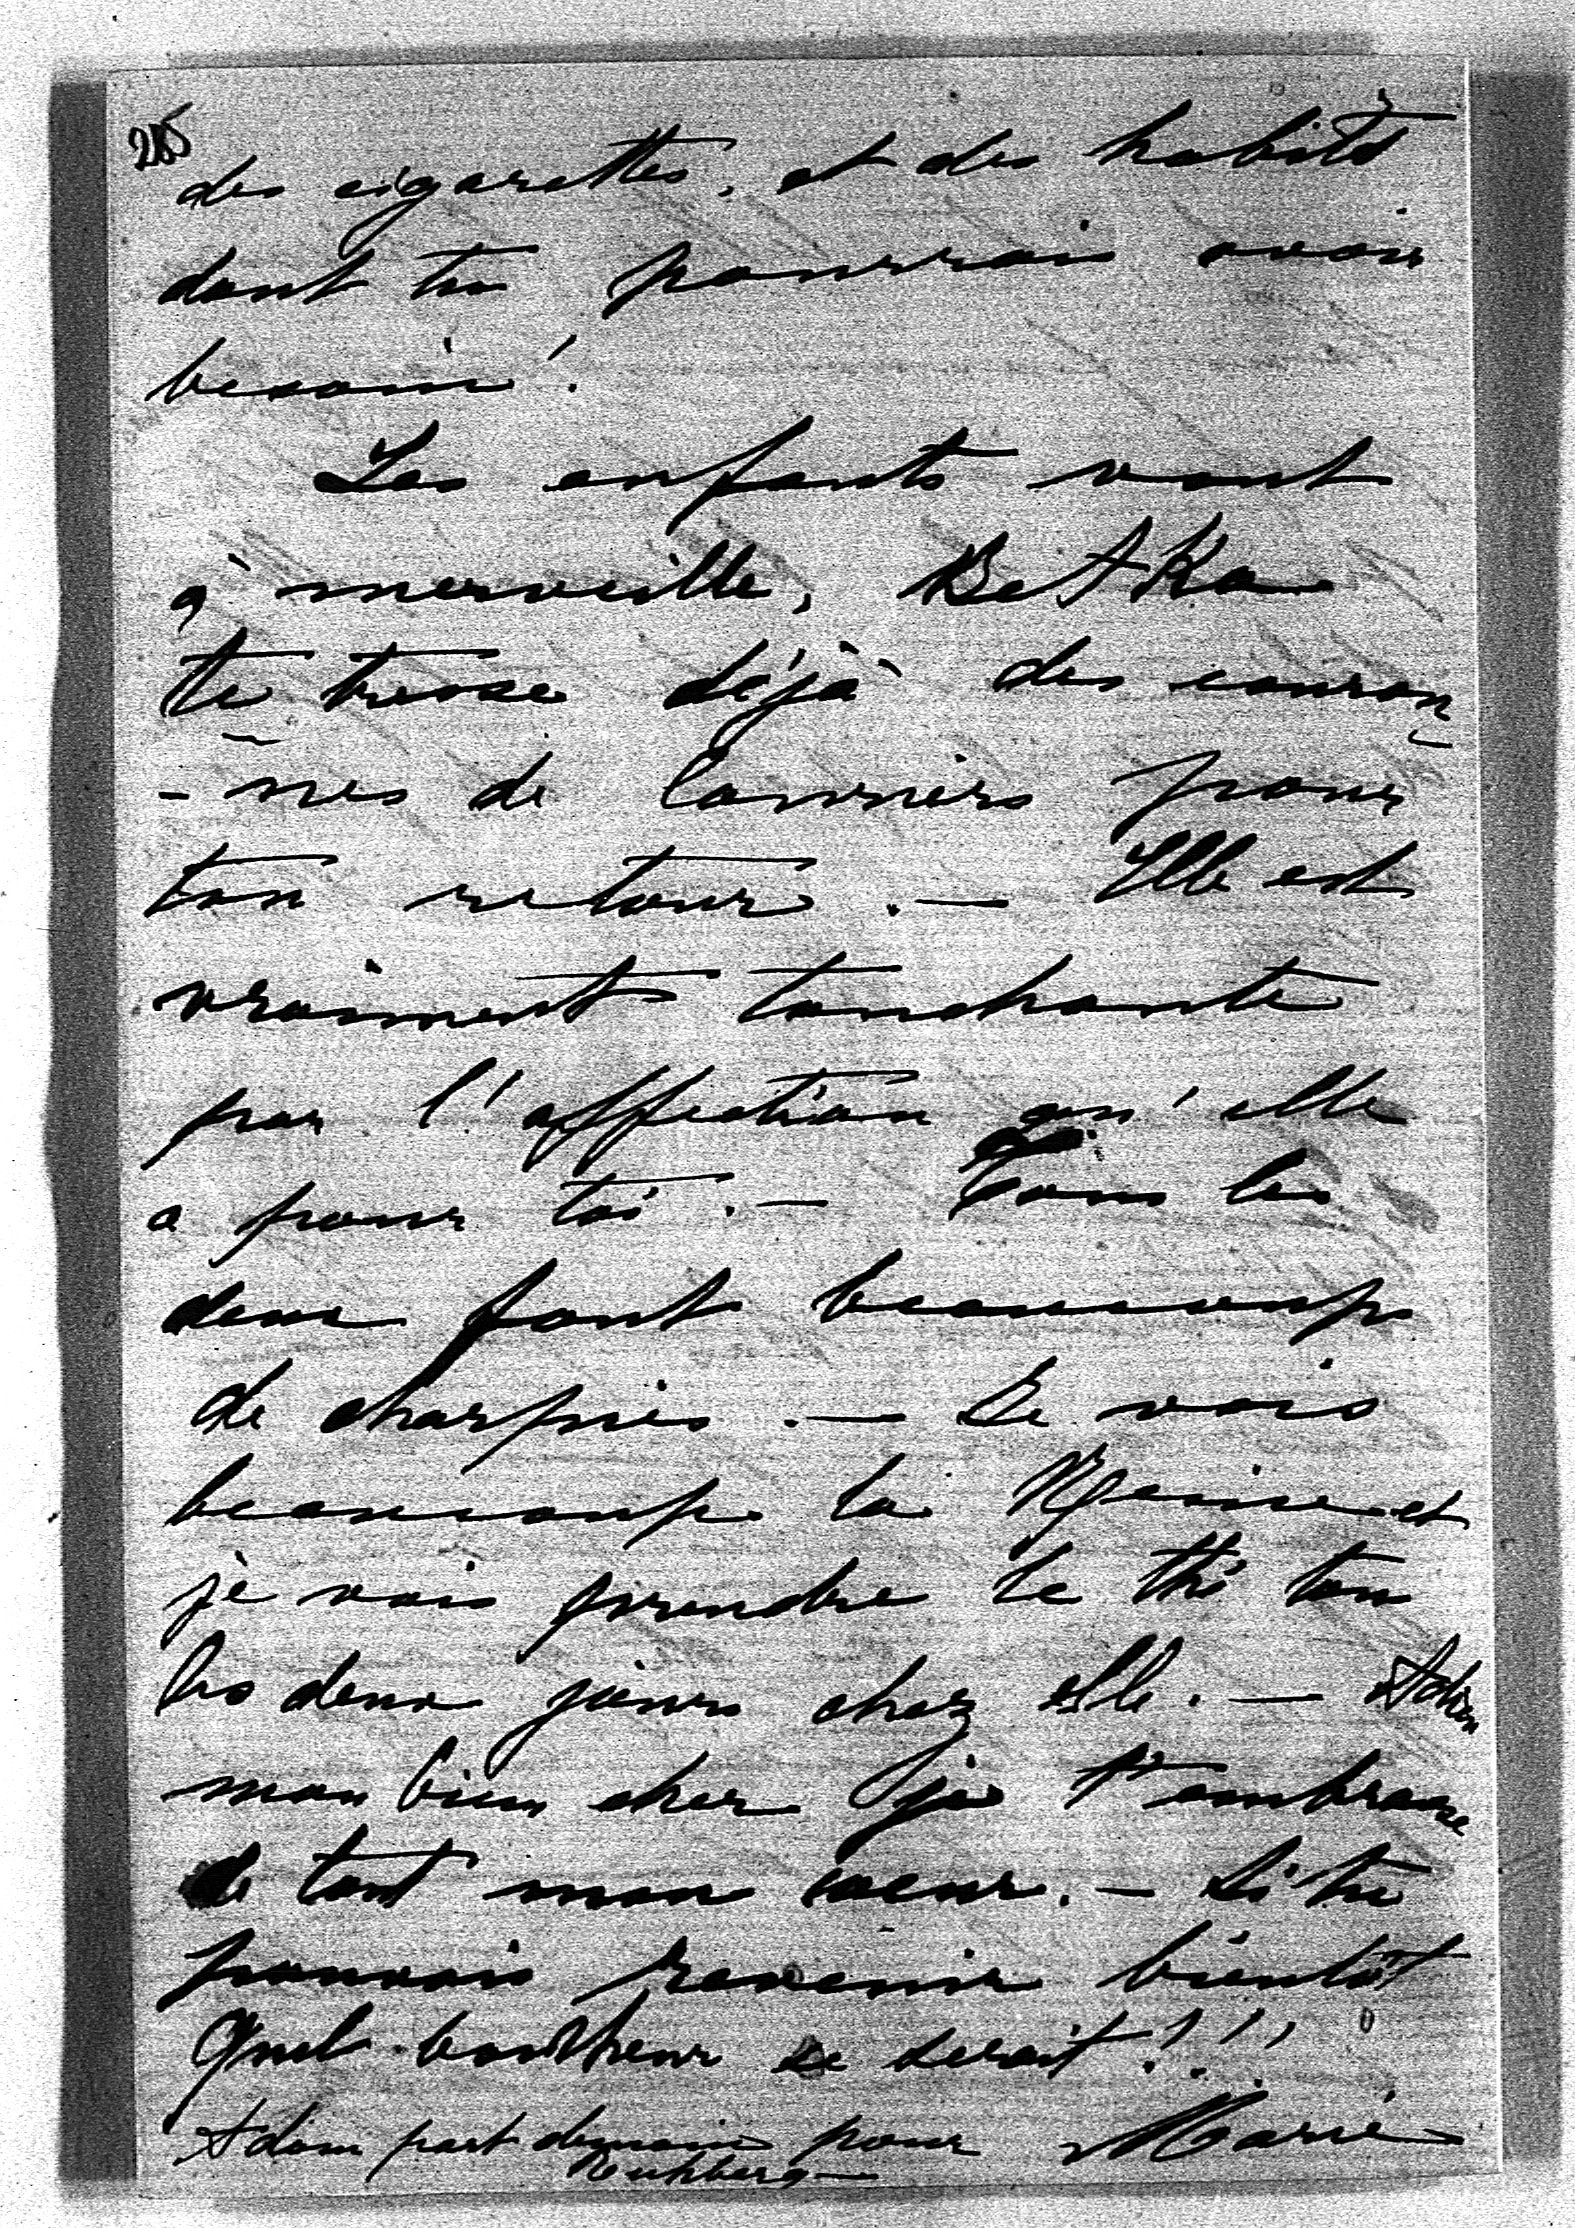 285
des cigarettes, et des habits
dont tu pourrais avoir
besoin !
Les enfants vont
à merveille, Betka
te tresse déjà des couron
- nes de lauriers pour
ton retour. — Elle est
vraiment touchante
par l'affection qu'elle
a pour toi. — Tous les
deux font beaucoup
de charpies. — Je vois
beaucoup la Reine et
je vais prendre le thé tous
les deux jours chez elle. — Adieu
mon bien cher je t'embrasse
de tout mon coeur. — Si tu
pouvais revenir bientôt
Quel bonheur se serait !!!
Adam part demain pour Marie